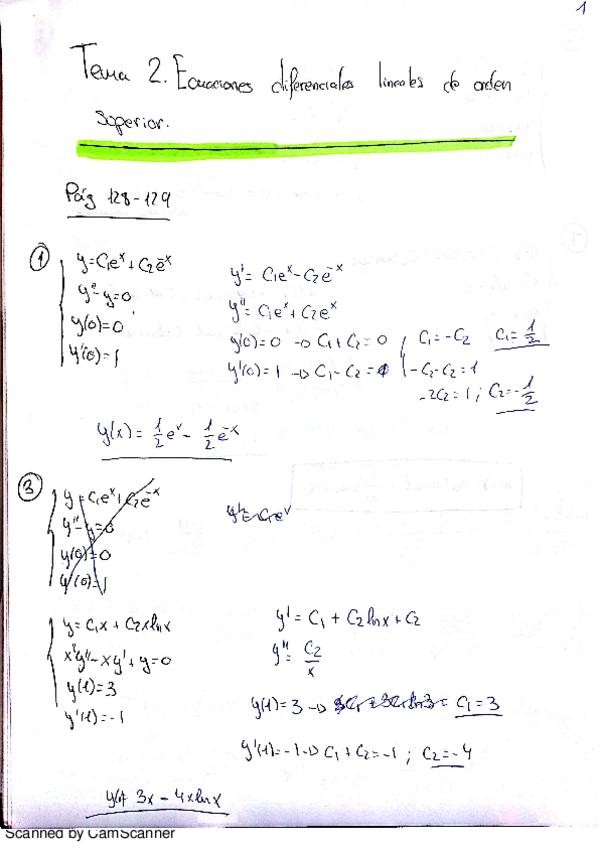 1
Tema 2. Ecuaciones diferenciales lineales de orden
superior.
Pág 128-129
① y = C₁eˣ + C₂e⁻ˣ
y'' - y = 0
y(0) = 0
y'(0) = 1
y' = C₁eˣ - C₂e⁻ˣ
y'' = C₁eˣ + C₂eˣ
y(0) = 0 → C₁ + C₂ = 0
y'(0) = 1 → C₁ - C₂ = 1
C₁ = -C₂ C₁ = 1/2
-C₂ - C₂ = 1
-2C₂ = 1 ; C₂ = -1/2
y(x) = 1/2 eˣ - 1/2 e⁻ˣ
③ y = C₁eˣ + C₂e⁻ˣ
y'' - y = 0
y(0) = 0
y'(0) = 1
y = C₁x + C₂xlnx
x²y'' - xy' + y = 0
y(1) = 3
y'(1) = -1
y' = C₁ + C₂lnx + C₂
y'' = C₂/x
y(1) = 3 → C₁ = 3
y'(1) = -1 → C₁ + C₂ = -1 ; C₂ = -4
3x - 4xlnx
Scanned by CamScanner